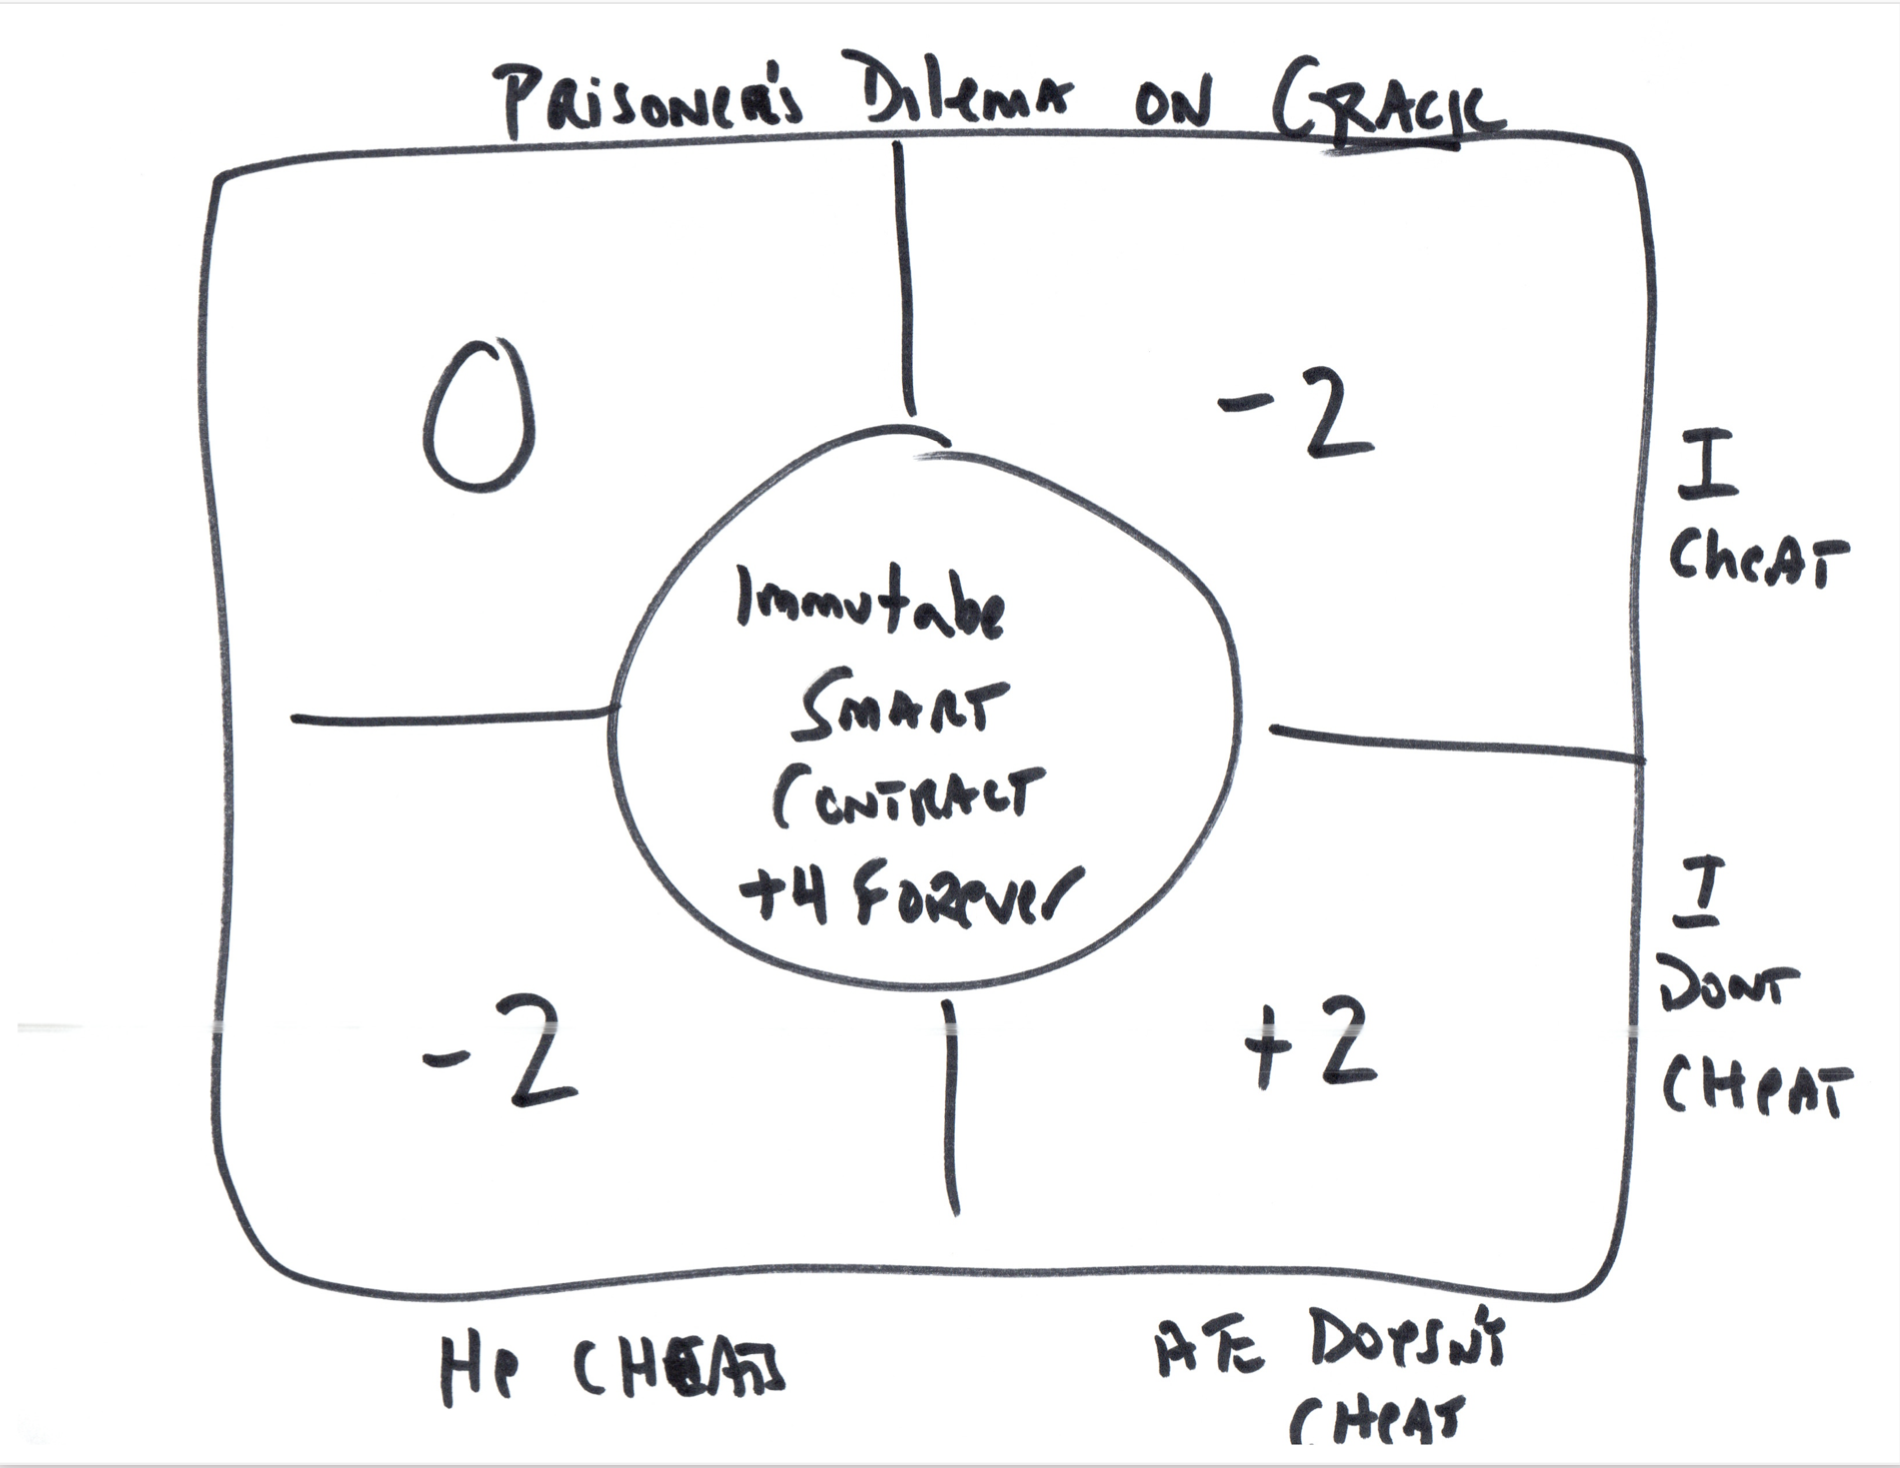 PRISONER'S DILEMA ON CRACK
0
-2
I
CHEAT
Immutabe
SMART
CONTRACT
+4 FOREVER
I
DONT
CHEAT
-2
+2
HE CHEATS
DOESN'T
CHEAT